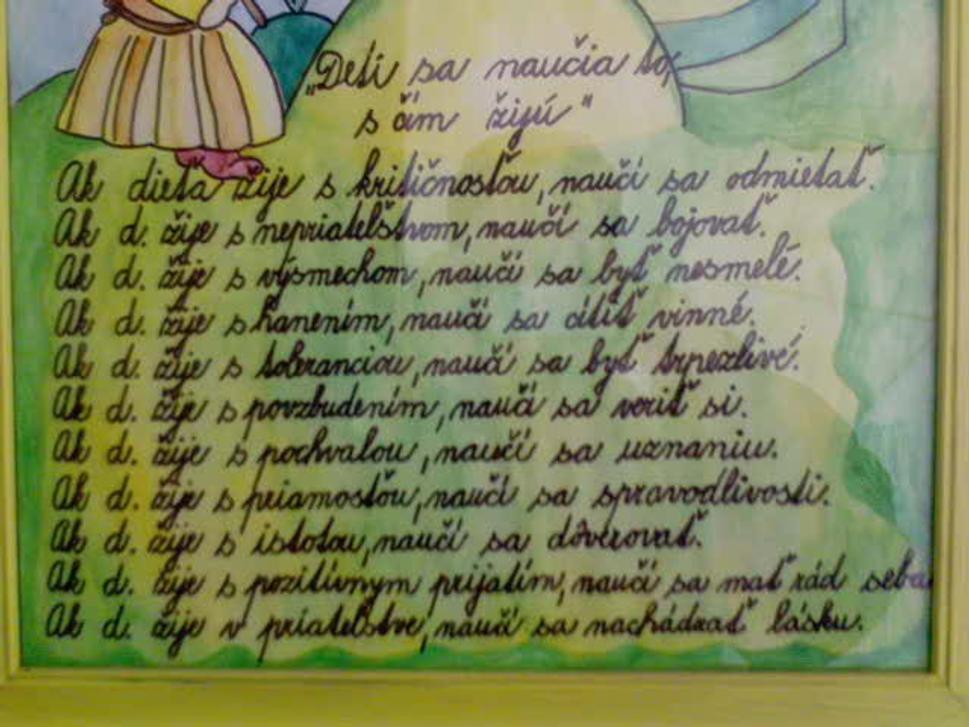 „Deti sa naučia to,
s čím žijú“
Ak dieťa žije s kritičnosťou, naučí sa odmietať.
Ak d. žije s nepriateľstvom, naučí sa bojovať.
Ak d. žije s výsmechom, naučí sa byť nesmelé.
Ak d. žije s hanením, naučí sa cítiť vinné.
Ak d. žije s toleranciou, naučí sa byť trpezlivé.
Ak d. žije s povzbudením, naučí sa veriť si.
Ak d. žije s pochvalou, naučí sa uznaniu.
Ak d. žije s priamosťou, naučí sa spravodlivosti.
Ak d. žije s istotou, naučí sa dôverovať.
Ak d. žije s pozitívnym prijatím, naučí sa mať rád seba
Ak d. žije v priateľstve, naučí sa nachádzať lásku.